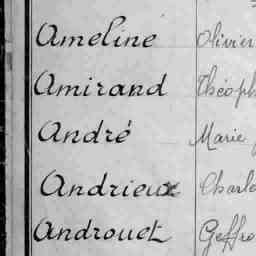 Ameline Olivier
Amirand Théoph
André Marie
Andrieux Charle
Androuet Geffro